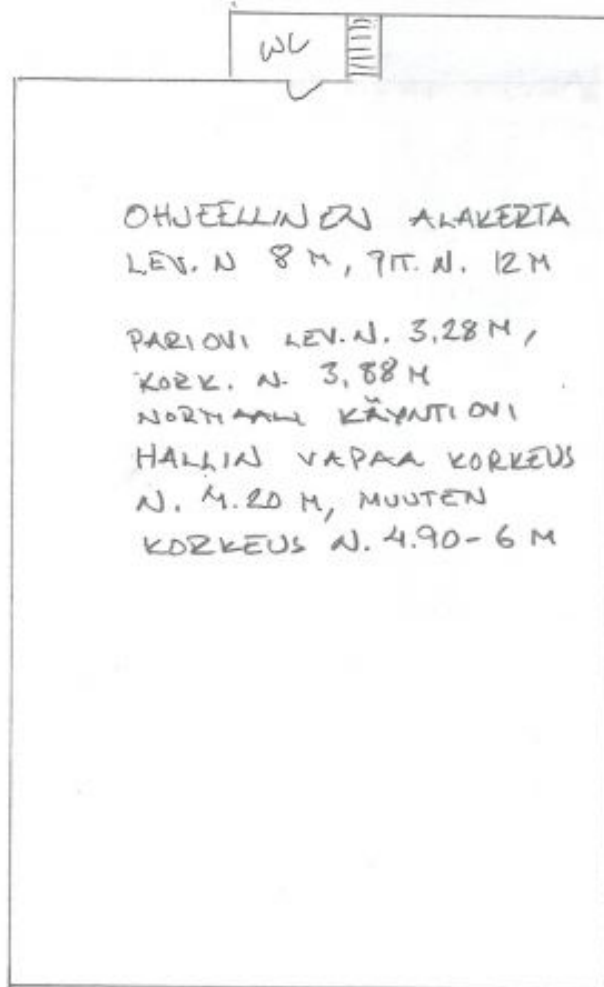 WC
OHJEELLINEN ALAKERTA
LEV. N 8 M, PIT. N. 12 M
PARIOVI LEV. N. 3,28 M,
KORK. N. 3,88 M
NORMAALI KÄYNTIOVI
HALLIN VAPAA KORKEUS
N. 4.20 M, MUUTEN
KORKEUS N. 4.90 - 6 M